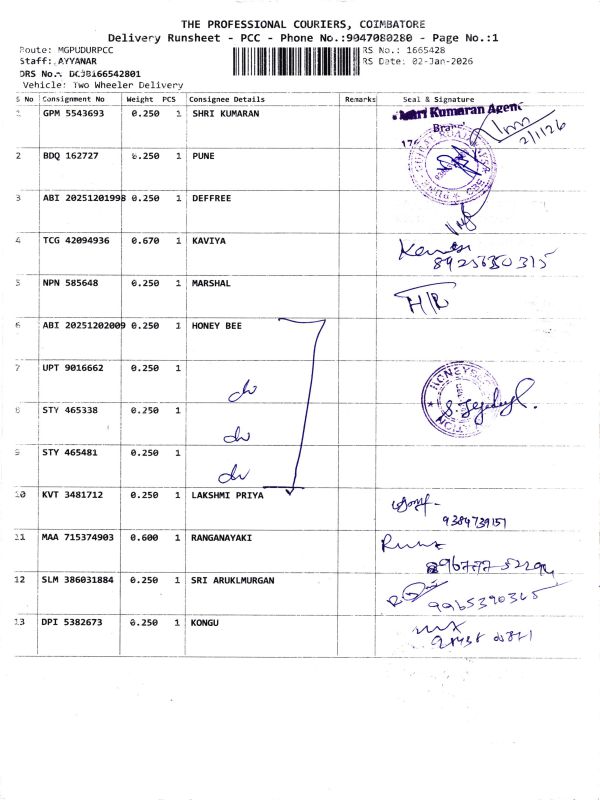 THE PROFESSIONAL COURIERS, COIMBATORE
Delivery Runsheet - PCC - Phone No.:9047080280 - Page No.:1
Route: MGPUDURPCC
RS No.: 1665428
Staff: AYYANAR
RS Date: 02-Jan-2026
DRS No.: DCJB166542801
Vehicle: Two Wheeler Delivery
S No Consignment No Weight PCS Consignee Details Remarks Seal & Signature
1 GPM 5543693 0.250 1 SHRI KUMARAN
Shri Kumaran Agen
Bran
176
2/1/26
2 BDQ 162727 0.250 1 PUNE
3 ABI 20251201998 0.250 1 DEFFREE
4 TCG 42094936 0.670 1 KAVIYA
8925630315
5 NPN 585648 0.250 1 MARSHAL
H/B
6 ABI 20251202009 0.250 1 HONEY BEE
7 UPT 9016662 0.250 1
HONEYBEE
8 STY 465338 0.250 1
9 STY 465481 0.250 1
10 KVT 3481712 0.250 1 LAKSHMI PRIYA
9384739157
11 MAA 715374903 0.600 1 RANGANAYAKI
12 SLM 386031884 0.250 1 SRI ARUKLMURGAN
9965390365
13 DPI 5382673 0.250 1 KONGU